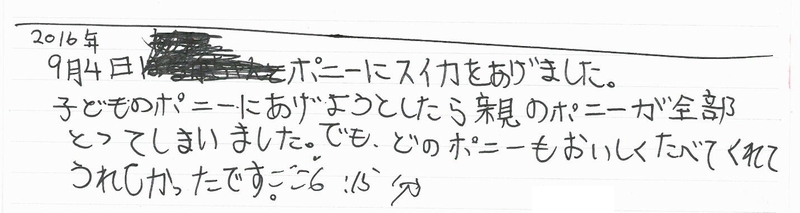 2016年
9月4日 ポニーにスイカをあげました。
子どものポニーにあげようとしたら親のポニーが全部
とってしまいました。でも、どのポニーもおいしくたべてくれて
うれしかったです。